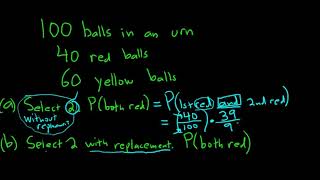 100 balls in an urn
40 red balls
60 yellow balls
(a) Select 2 without replacement P(both red) = P(1st red and 2nd red)
= (40/100) · 39/9
(b) Select 2 with replacement. P(both red)